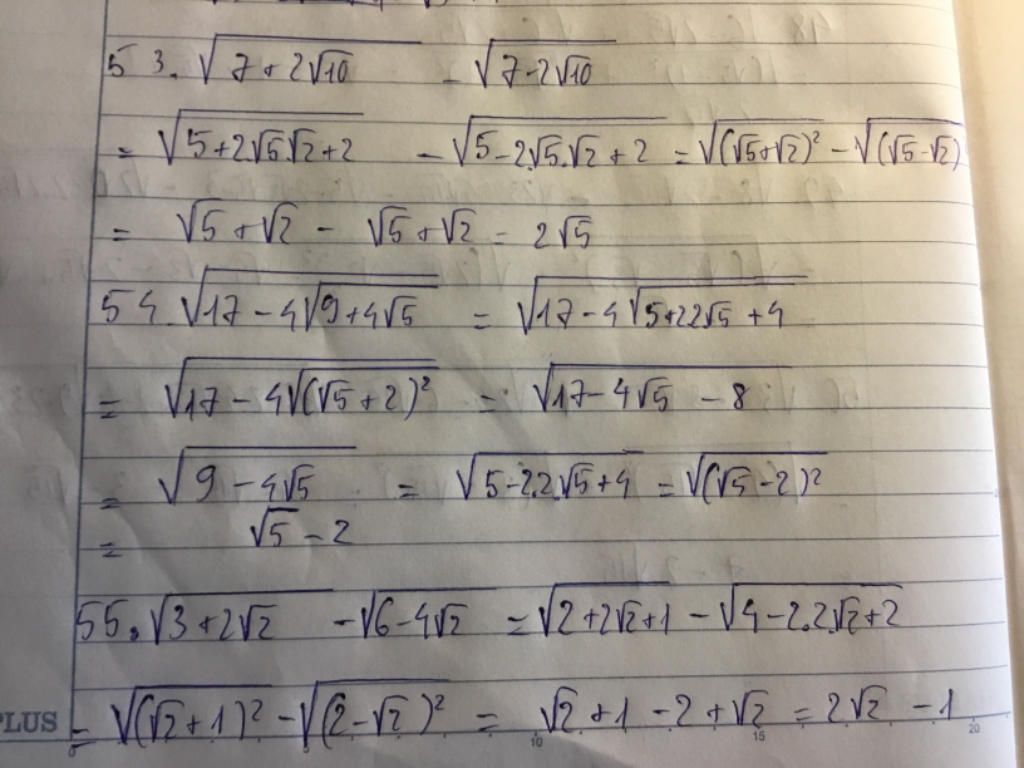 53. √(7+2√10) - √(7-2√10)
= √(5+2.√5.√2+2) - √(5-2√5.√2+2) = √((√5+√2)²) - √((√5-√2)
= √5+√2 - √5+√2 = 2√5
54. √(17-4√(9+4√5)) = √(17-4√(5+2.2√5+4))
= √(17-4√((√5+2)²)) = √(17-4√5-8)
= √(9-4√5) = √(5-2.2.√5+4) = √((√5-2)²)
= √5-2
55. √(3+2√2) - √(6-4√2) = √(2+2√2+1) - √(4-2.2.√2+2)
PLUS = √((√2+1)²) - √((2-√2)²) = √2+1-2+√2 = 2√2-1
10 15 20